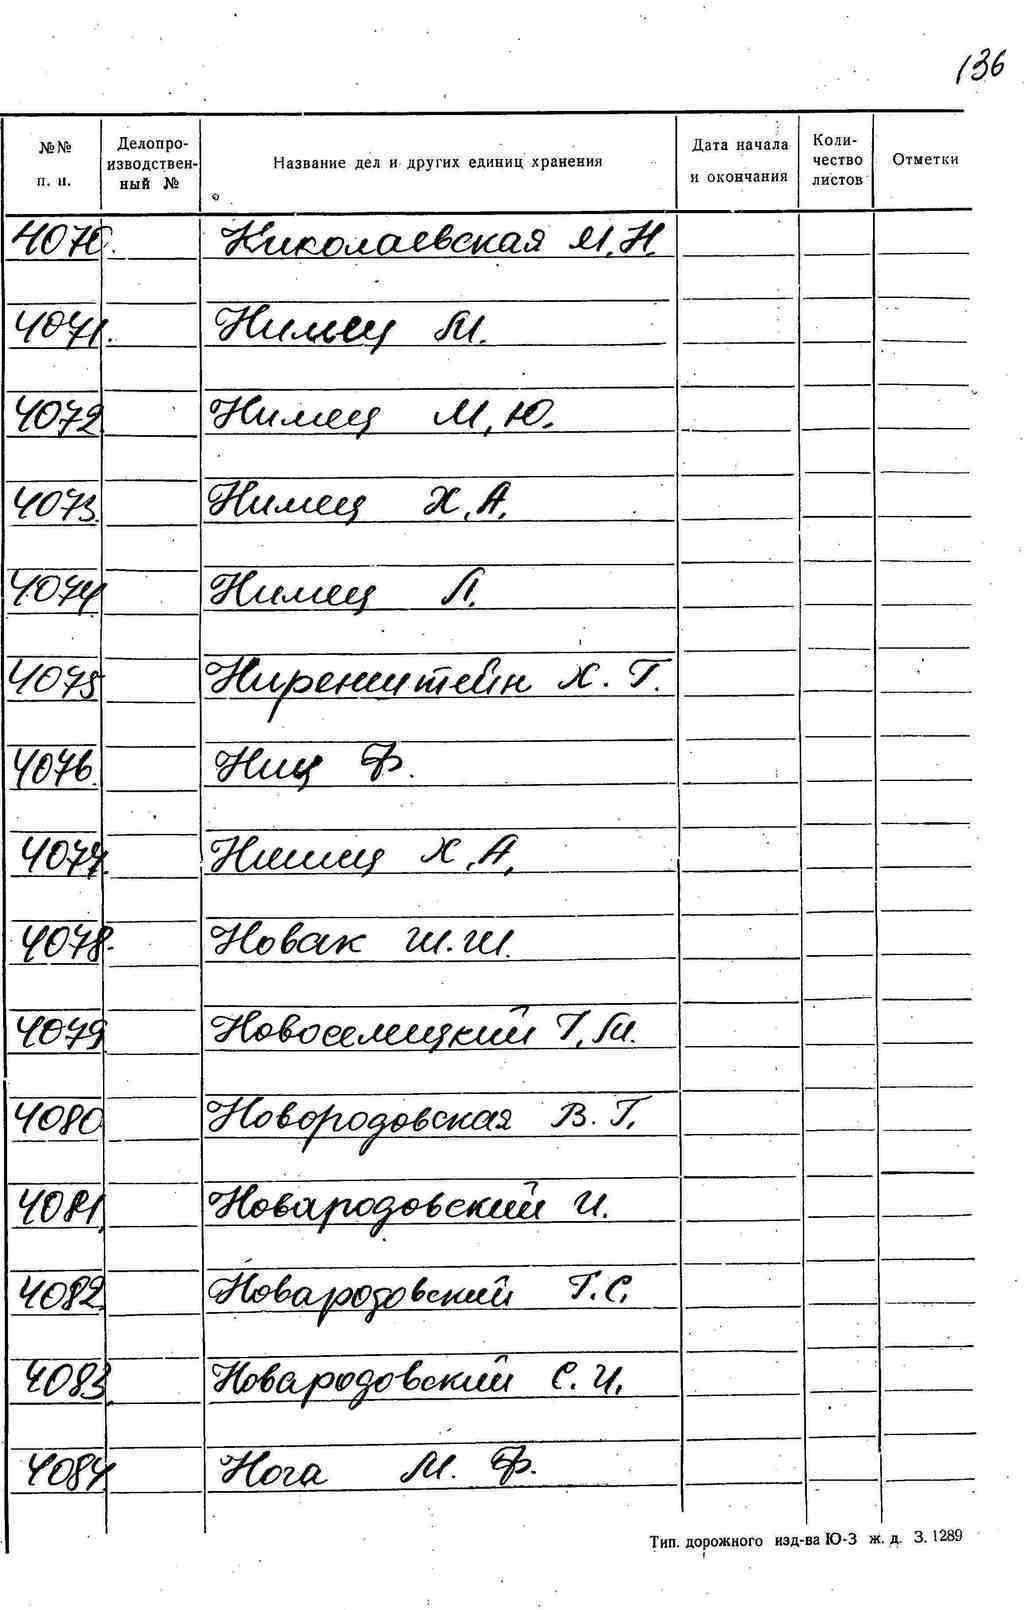 136
№№ п. п.
Делопро-
изводствен-
ный №
Название дел и других единиц хранения
Дата начала
и окончания
Коли-
чество
листов
Отметки
4070. Николаевская М.Н.
4071. Нимец М.
4072. Нимец М.Ю.
4073. Нимец Х.А.
4074. Нимец Л.
4075. Ниренштейн Х.Г.
4076. Ниц Ф.
4077. Нишец Х.А.
4078. Новак Ш.Ш.
4079. Новоселицкий Г.М.
4080. Новородовская В.Г.
4081. Новародовский И.
4082. Новародовский Г.С.
4083. Новародовский С.И.
4084. Нога М.Ф.
Тип. дорожного изд-ва Ю-З ж. д. З. 1289